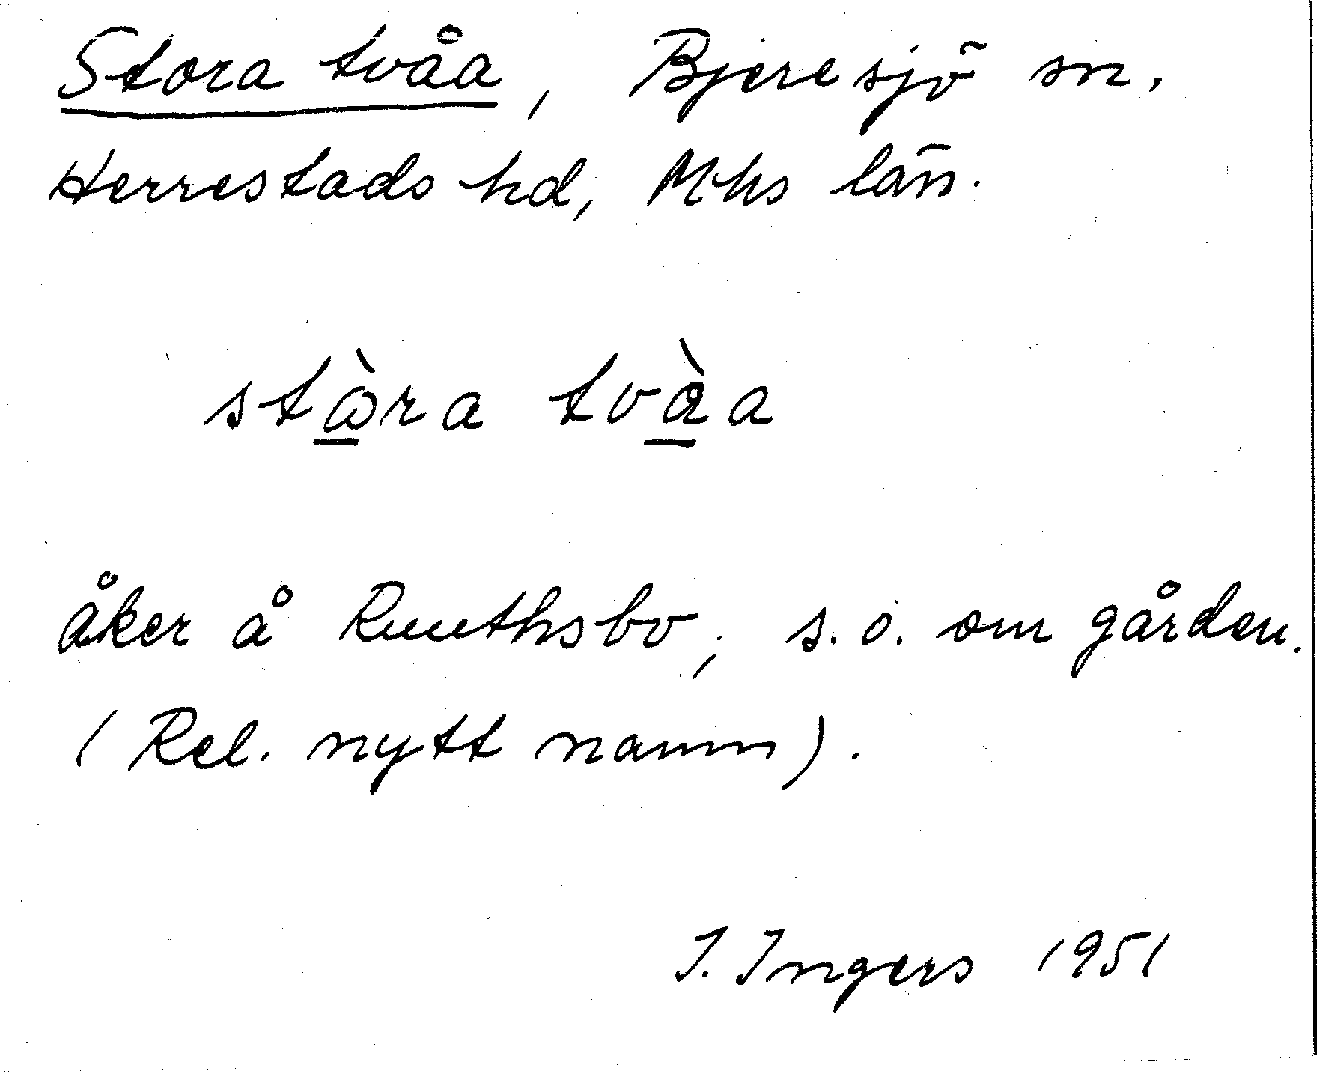 Stora tvåa, Bjeresjö sn.
Herrestads hd, Mhs län.
stὼ̲ra tvὰ̲a
åker å Ruuthsbo, s.o. om gården.
(Rel. nytt namn).
I. Ingers 1951